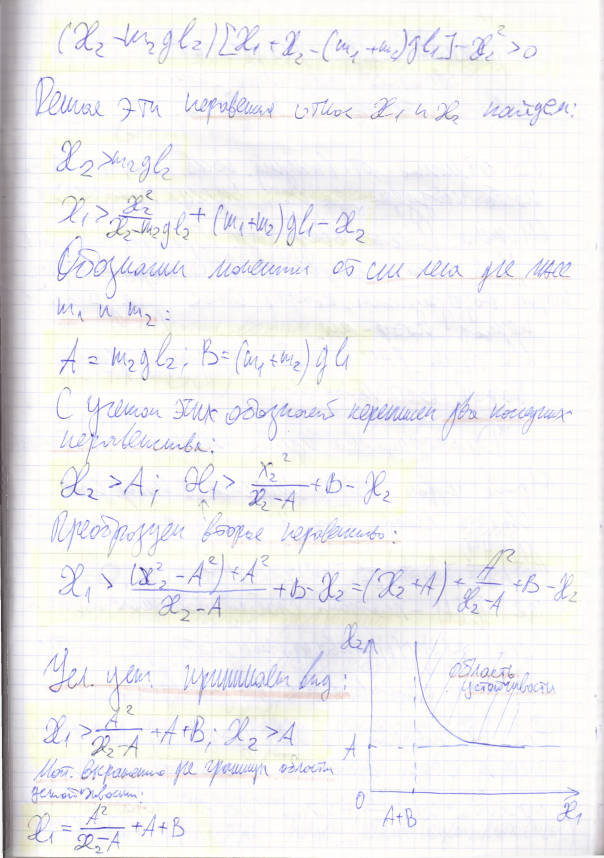 (ϰ₂-m₂gl₂)[ϰ₁+ϰ₂-(m₁+m₂)gl₁]-ϰ₂²>0
Решая эти неравения относ ϰ₁ и ϰ₂ найдем:
ϰ₂>m₂gl₂
ϰ₁>ϰ₂²/(ϰ₂-m₂gl₂)+(m₁+m₂)gl₁-ϰ₂
Обозначим моменты от сил веса для масс
m₁ и m₂:
A=m₂gl₂; B=(m₁+m₂)gl₁
С учетом этих обознач перепишем два последних
неравенства:
ϰ₂>A; ϰ₁>ϰ₂²/(ϰ₂-A)+B-ϰ₂
Преобразуем второе неравенство:
ϰ₁>((ϰ₂²-A²)+A²)/(ϰ₂-A)+B-ϰ₂=(ϰ₂+A)+A²/(ϰ₂-A)+B-ϰ₂
Усл. уст. принимает вид:
ϰ₁>A²/(ϰ₂-A)+A+B; ϰ₂>A
Мат. выражение для границы области
устойчивости:
ϰ₁=A²/(ϰ₂-A)+A+B
ϰ₂
область
устойчивости
A
0
A+B
ϰ₁